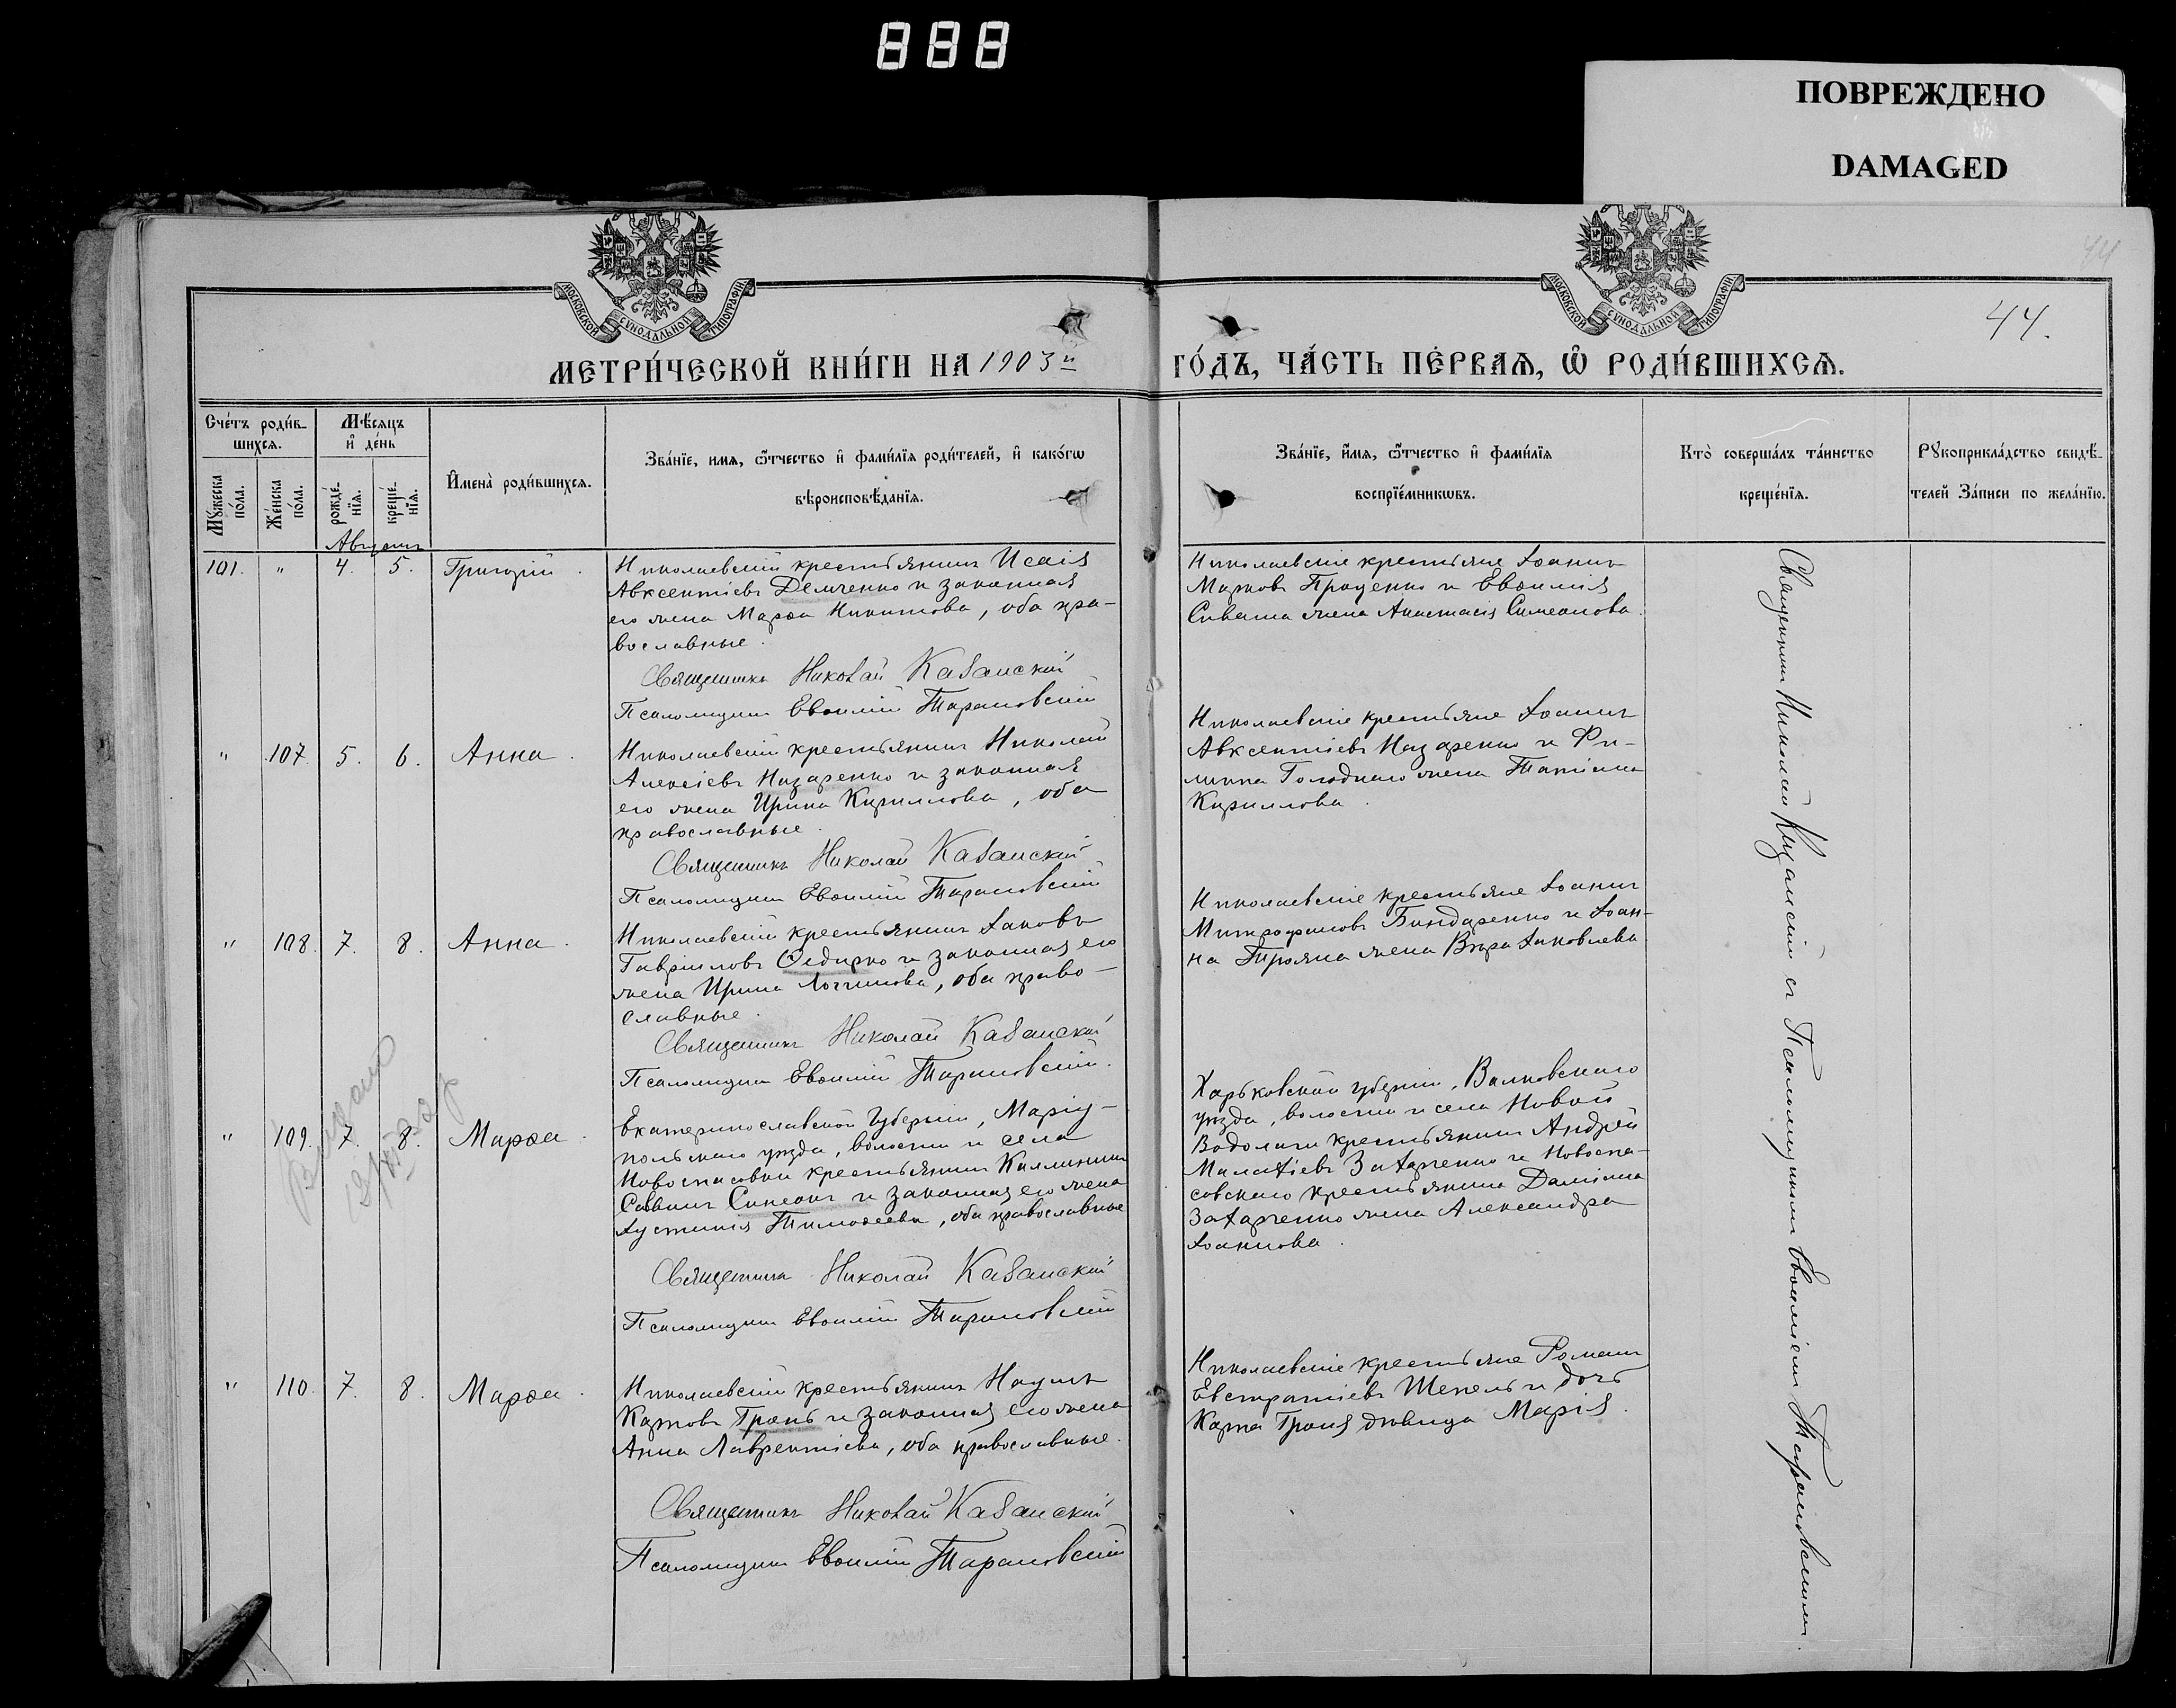 888
ПОВРЕЖДЕНО
DAMAGED
МОСКОВСКОЙ СѴНОДАЛЬНОЙ ТИПОГРАФІИ
МОСКОВСКОЙ СѴНОДАЛЬНОЙ ТИПОГРАФІИ
44
44.
МЕТРИ́ЧЕСКОЙ КНИ́ГИ НА 1903й ГО́ДЪ, ЧА́СТЬ ПЕ́РВАѦ, Ѡ РОДИ́ВШИХСѦ.
Сче́тъ роди́в-
шихсѧ.
Мꙋ́жеска по́ла.
Же́нска по́ла.
Мѣ́сѧцъ
и҆ де́нь
рожде́-нїѧ.
креще́-нїѧ.
И҆мена̀ роди́вшихсѧ.
Зва́нїе, имѧ, ѻ҆́тчество и҆ фами́лїѧ роди́телей, и҆ како́гѡ
вѣроисповѣ́данїѧ.
Зва́нїе, и҆́мѧ, ѻ҆́тчество и҆ фами́лїѧ
воспрїе́мникѡвъ.
Кто̀ соверша́лъ та́инство
креще́нїѧ.
Рꙋкоприкла́дство свидѣ́-
телей За́писи по жела́нїю.
Августъ
101. " 4. 5. Григорій.
Николаевскій крестьянинъ Исаія
Авксентіевъ Демченко и законная
его жена Марѳа Никитова, оба пра-
вославные.
Священникъ Николай Казанскій
Псаломщикъ Евѳимій Тарановскій
Николаевскіе крестьяне Іоаннъ
Марковъ Проценко и Евѳимія
Сиваша жена Анастасія Симеонова.
" 107. 5. 6. Анна.
Николаевскій крестьянинъ Николай
Алексіевъ Назаренко и законная
его жена Ирина Кириллова, оба
православные.
Священникъ Николай Казанскій
Псаломщикъ Евѳимій Тарановскій
Николаевскіе крестьяне Іоаннъ
Авксентіевъ Назаренко и Фи-
липпа Голоднаго жена Татіана
Кириллова.
" 108. 7. 8. Анна.
Николаевскій крестьянинъ Іаковъ
Гавріиловъ Федирко и законная его
жена Ирина Логгинова, оба право-
славные.
Священникъ Николай Казанскій
Псаломщикъ Евѳимій Тарановскій.
Николаевскіе крестьяне Іоаннъ
Митрофановъ Бондаренко и Іоан-
на Трояна жена Вѣра Іаковлева
" 109. 7. 8. Марѳа.
Екатеринославской Губерніи, Маріу-
польскаго уѣзда, волости и села
Новоспасовки крестьянинъ Каллиникъ
Саввинъ и законная его жена
Іустинія Тимоѳеева, оба православные
Священникъ Николай Казанскій
Псаломщикъ Евѳимій Тарановскій
Харьковской губерніи, Валковскаго
уѣзда, волости и села Новой
Водолаги крестьянинъ Андрей
Захарченко и Новоспа-
совскаго крестьянина Даміана
Захарченко жена Александра
Іоаннова.
" 110. 7. 8. Марѳа.
Николаевскій крестьянинъ Наумъ
Карповъ Гронь и законная его жена
Анна Лаврентіева, оба православные.
Священникъ Николай Казанскій
Псаломщикъ Евѳимій Тарановскій
Николаевскіе крестьяне Романъ
Евстратіевъ Шепель и дочь
Карпа Гроня дѣвица Марія.
Священникъ Николай Казанскій съ Псаломщикомъ Евѳиміемъ Тарановскимъ.